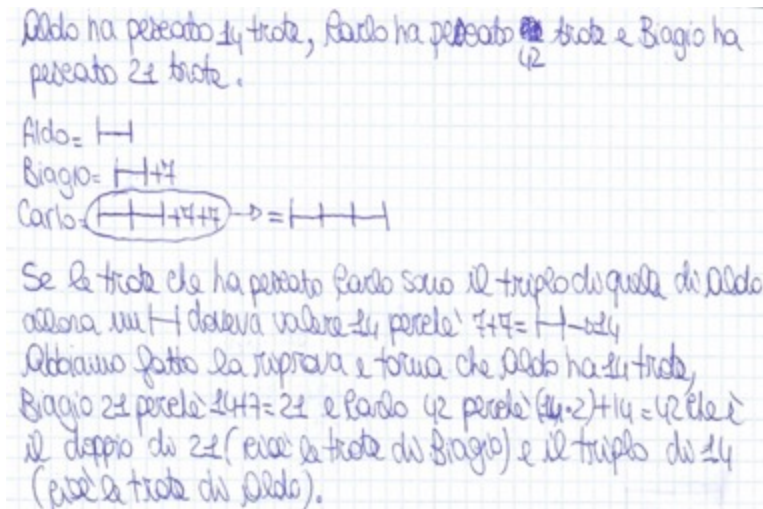 Aldo ha pescato 14 trote, Carlo ha pescato 42 trote e Biagio ha
pescato 21 trote.
Aldo=
Biagio= +7
Carlo= +7+7 → =
Se le trote che ha pescato Carlo sono il triplo di quelle di Aldo
allora un doveva valere 14 perché 7+7= → 14
Abbiamo fatto la riprova e torna che Aldo ha 14 trote,
Biagio 21 perché 14+7=21 e Carlo 42 perché (14·2)+14=42 che è
il doppio di 21 (cioè le trote di Biagio) e il triplo di 14
(cioè le trote di Aldo).